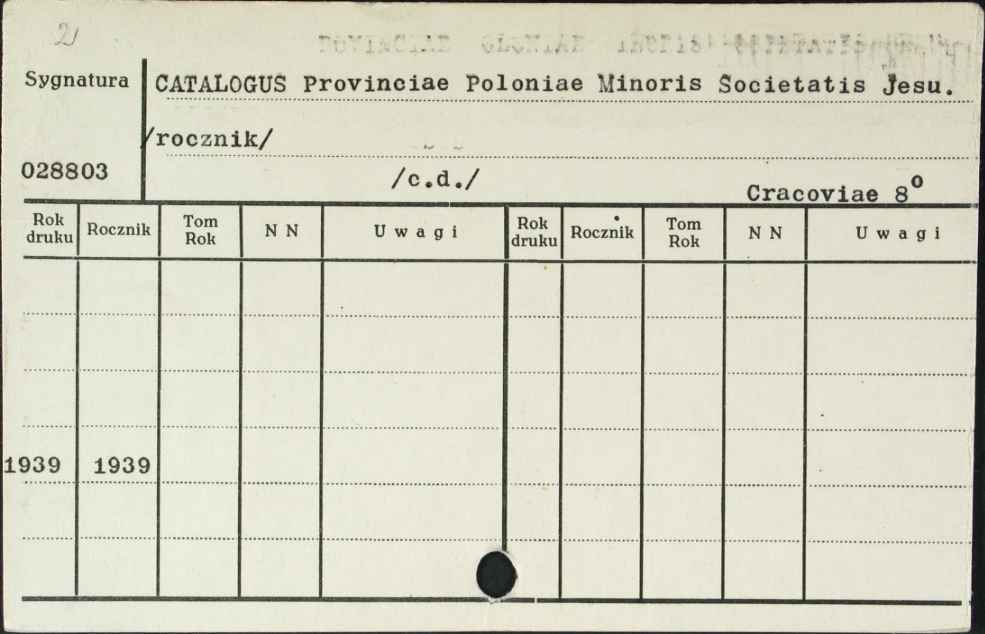 2
Sygnatura
CATALOGUS Provinciae Poloniae Minoris Societatis Jesu.
/rocznik/
028803
/c.d./
Cracoviae 8º
Rok druku Rocznik Tom Rok N N Uwagi Rok druku Rocznik Tom Rok N N Uwagi
1939 1939